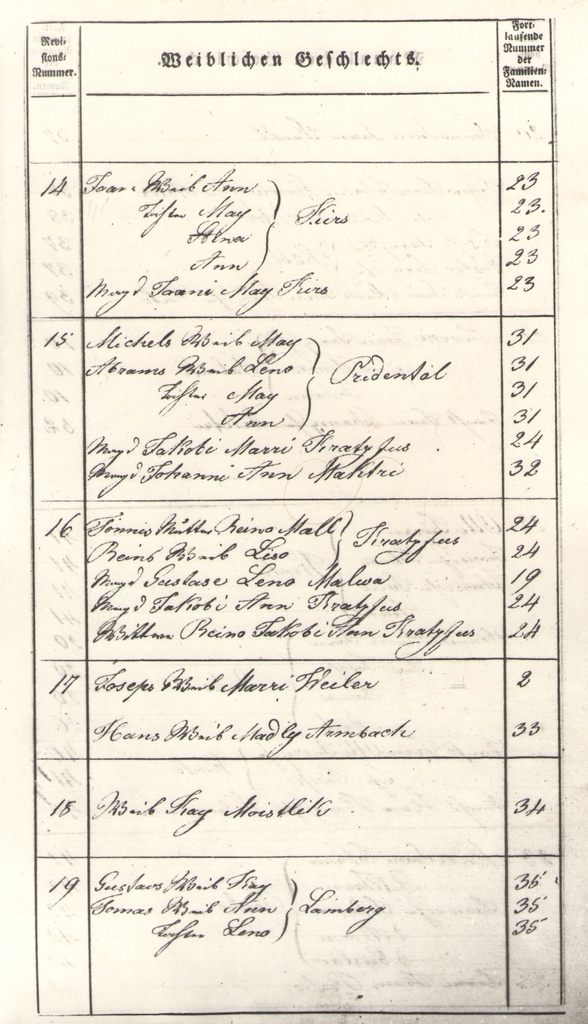 Revi-
sions-
Nummer.
Weiblichen Geschlechts.
Fort-
laufende
Nummer
der
Familien-
Namen.
14 Jaan Weib Ann 23
Töchter May Kirs 23.
Anna 23
Ann 23
Magd Jaani May Kirs 23
15 Michels Weib May 31
Abrams Weib Leno Pridental 31
Töchter May 31
Ann 31
Magd Jakobi Marri Kratyfus 24
Magd Johanni Ann Mahtri 32
16 Tönnis Mutter Reino Mall Kratyfus 24
Reins Weib Liso 24
Magd Gustase Leno Malwa 19
Magd Jakobi Ann Kratyfus 24
Wittwe Reino Jakobi Ann Kratyfus 24
17 Joseps Weib Marri Weiler 2
Hans Weib Madly Armbach 33
18 Weib Kay Moistlik 34
19 Gustavs Weib Kay 35
Tomas Weib Ann Lamberg 35
Tochter Leno 35